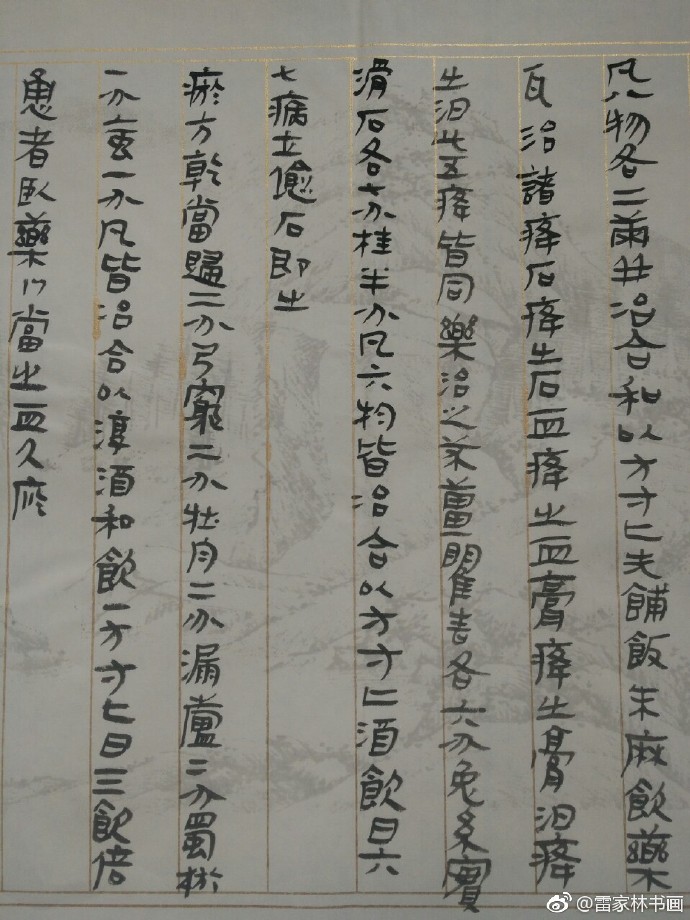 凡八物各二兩并冶合和以方寸匕先餔飯米麻飲藥
瓦治諸癃石癃出石血癃出血膏癃出膏泔癃
出泔此五癃皆同樂治之朮薑瞿麦各六分兔糸實
滑石各七分桂半分凡六物皆冶合以方寸匕酒飲日六
七病立愈石即出
瘀方乾當歸二分弓窮二分牡丹二分漏盧二分蜀椒
一分䖟一分凡皆冶合以淳酒和飲一方寸匕日三飲倍
恿者臥藥中當出血久瘀
@雷家林书画